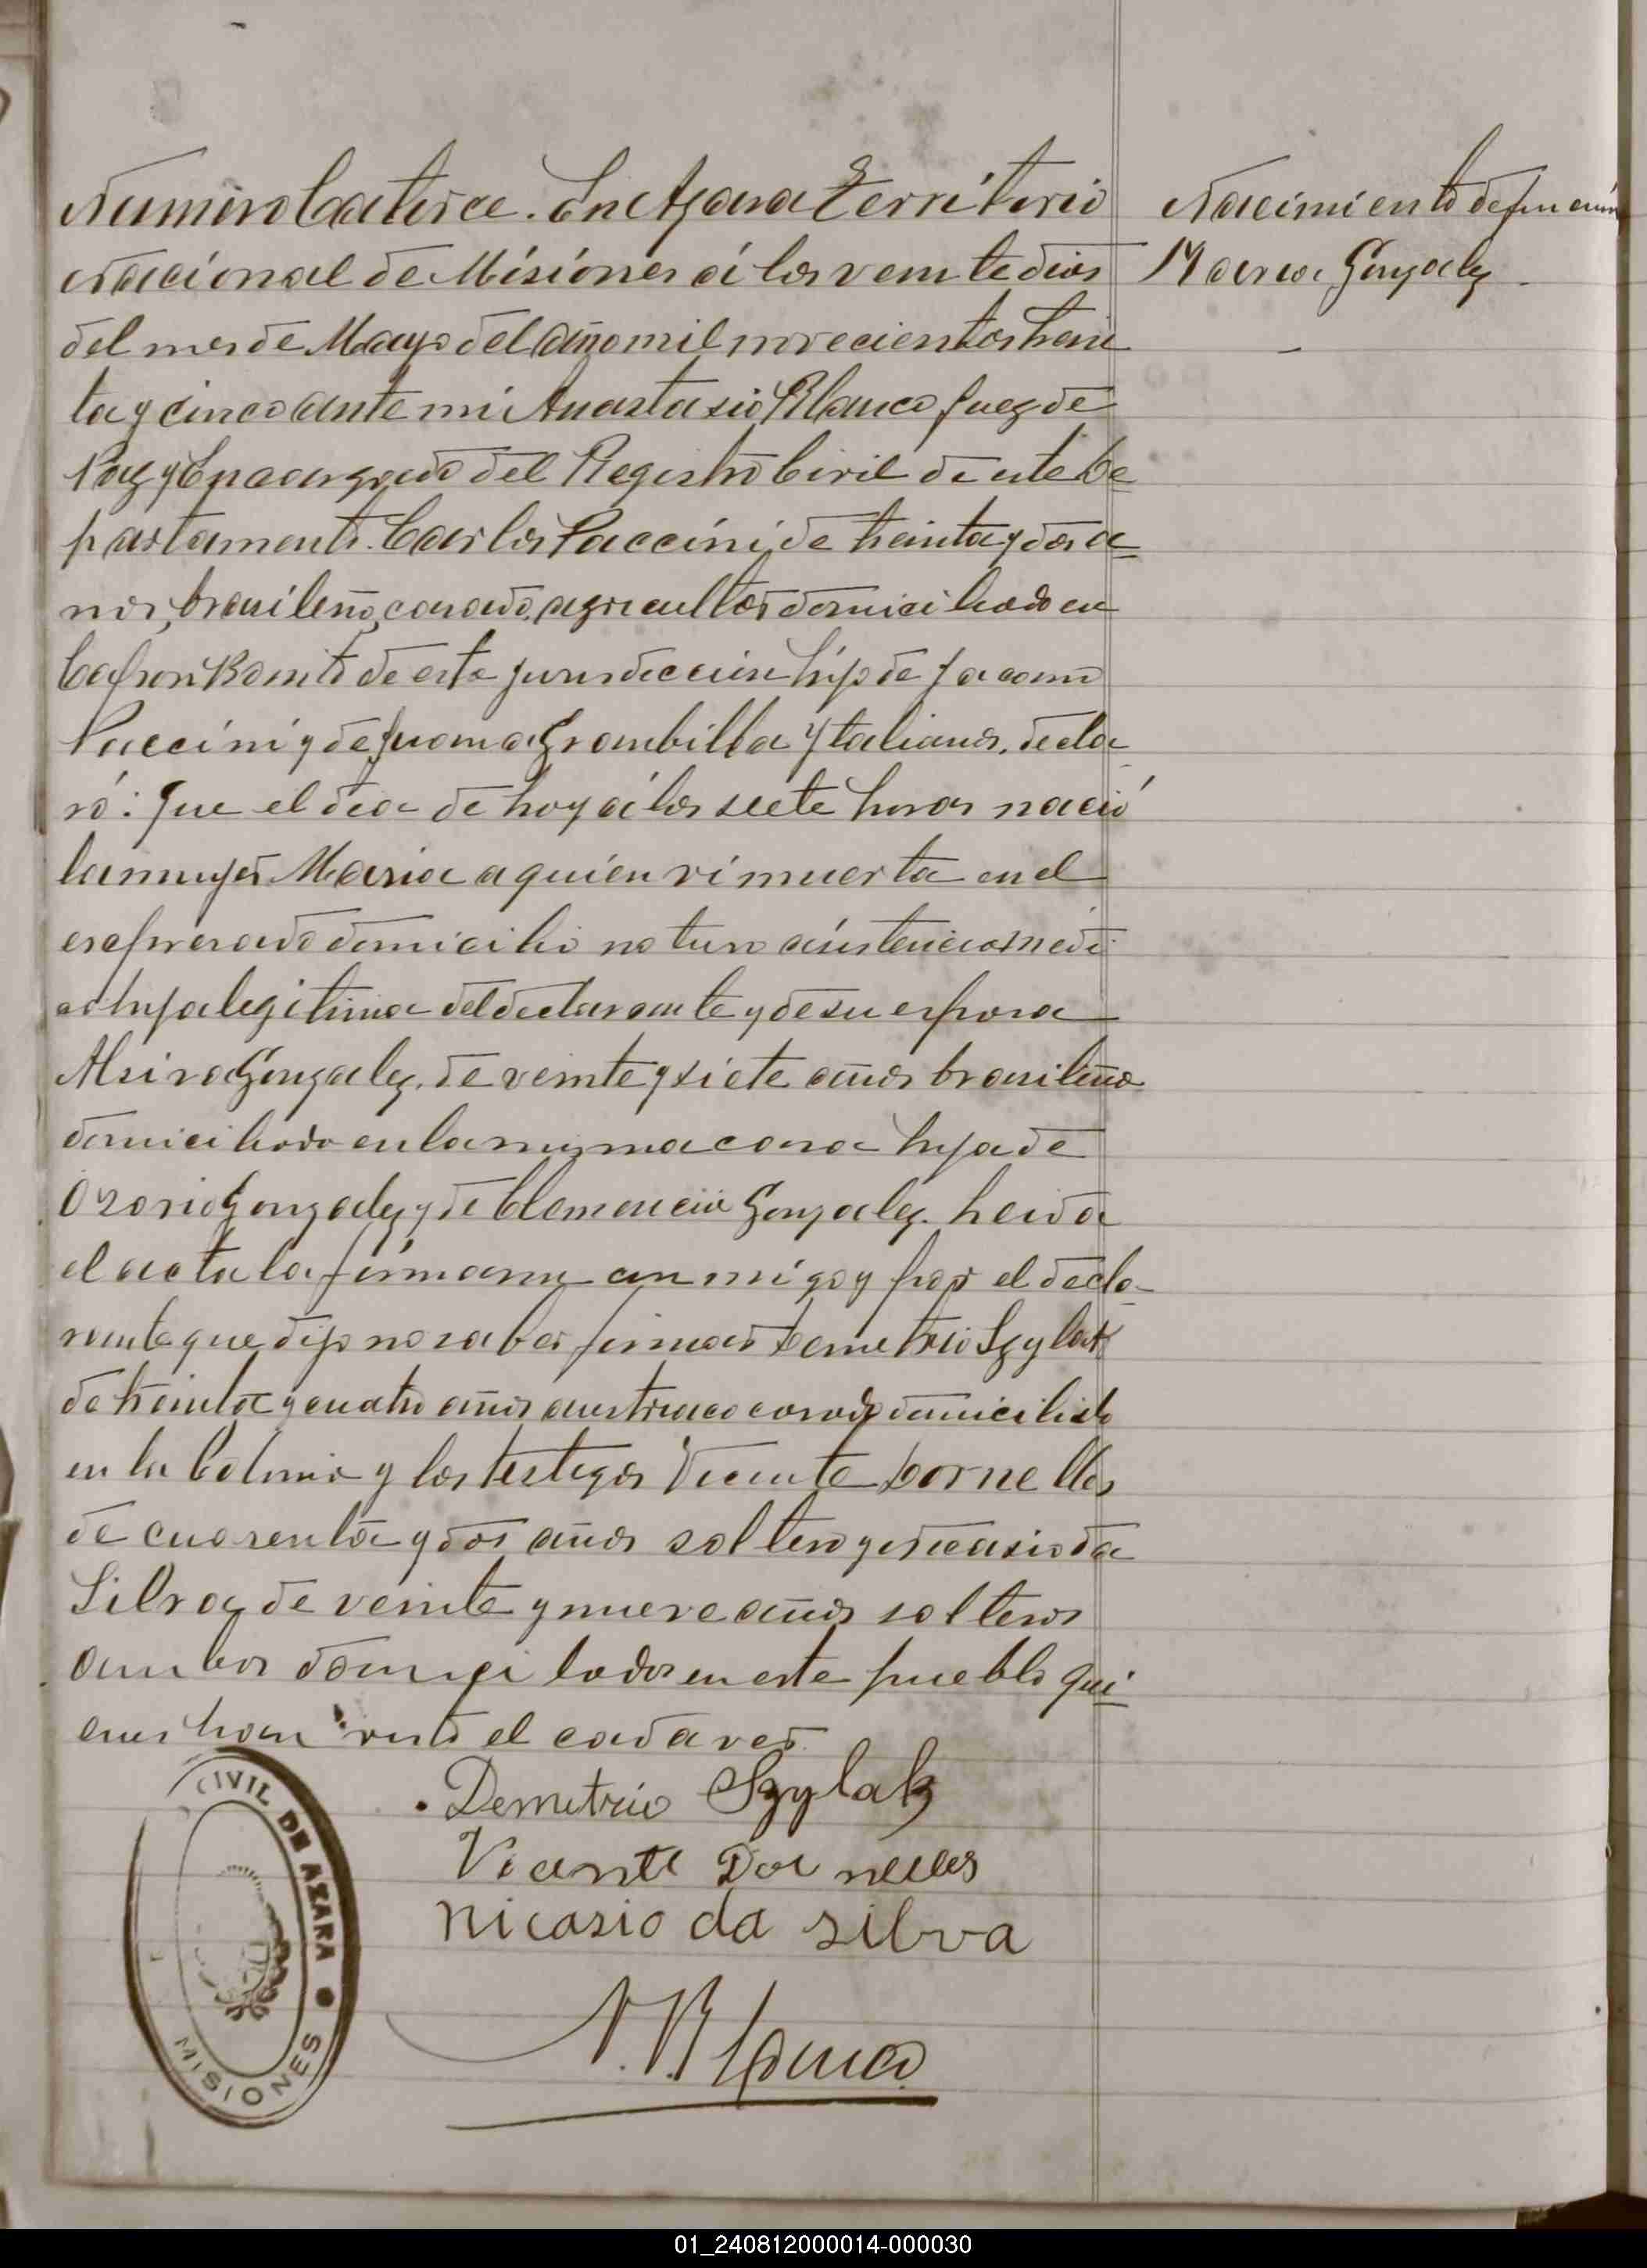 Numero Catorce. En Azara Territorio
Nacional de Misiones á los veinte dias
del mes de Mayo del año mil novecientos trein
ta y cinco ante mi Anastasio Blanco Juez de
Paz y Encargado del Registro Civil de este De=
partamento. Carlos Paccini, de treinta y dos a=
ños, brasileño, casado, agricultor domiciliado en
Cajon Bonito de esta jurisdiccion hijo de Jacomo
Paccini y de Juana Grambilla Ytalianos, decla
ró: Que el dia de hoy á las siete horas nació
la mujer Maria a quien vi muerta en el
espresado domicilio no tuvo asistencia medi
ca hija legitima del declarante y de su esposa
Alsira Gonzalez, de veinte y siete años brasileña
domiciliado en la misma casa hija de
Osorio Gonzalez y de Clemencia Gonzalez. Leida
el acta la firmaron conmigo y por el decla-
rante que dijo no saber firmar Demetrio Szylak
de treinta y cuatro años austriaco casado domiciliado
en la Colonia y los testigos Vicente Dornelles
de cuarenta y dos años soltero y Nicasio da
Silva, de veinte y nueve años solteros
ambos domiciliados en este pueblo qui=
enes han visto el cadaver.
Demetrio Szylak
Vicente Dornelles
nicasio da silva
A. Blanco
Nacimiento defunción
Maria Gonzalez
CIVIL DE AZARA
MISIONES
01_240812000014-000030